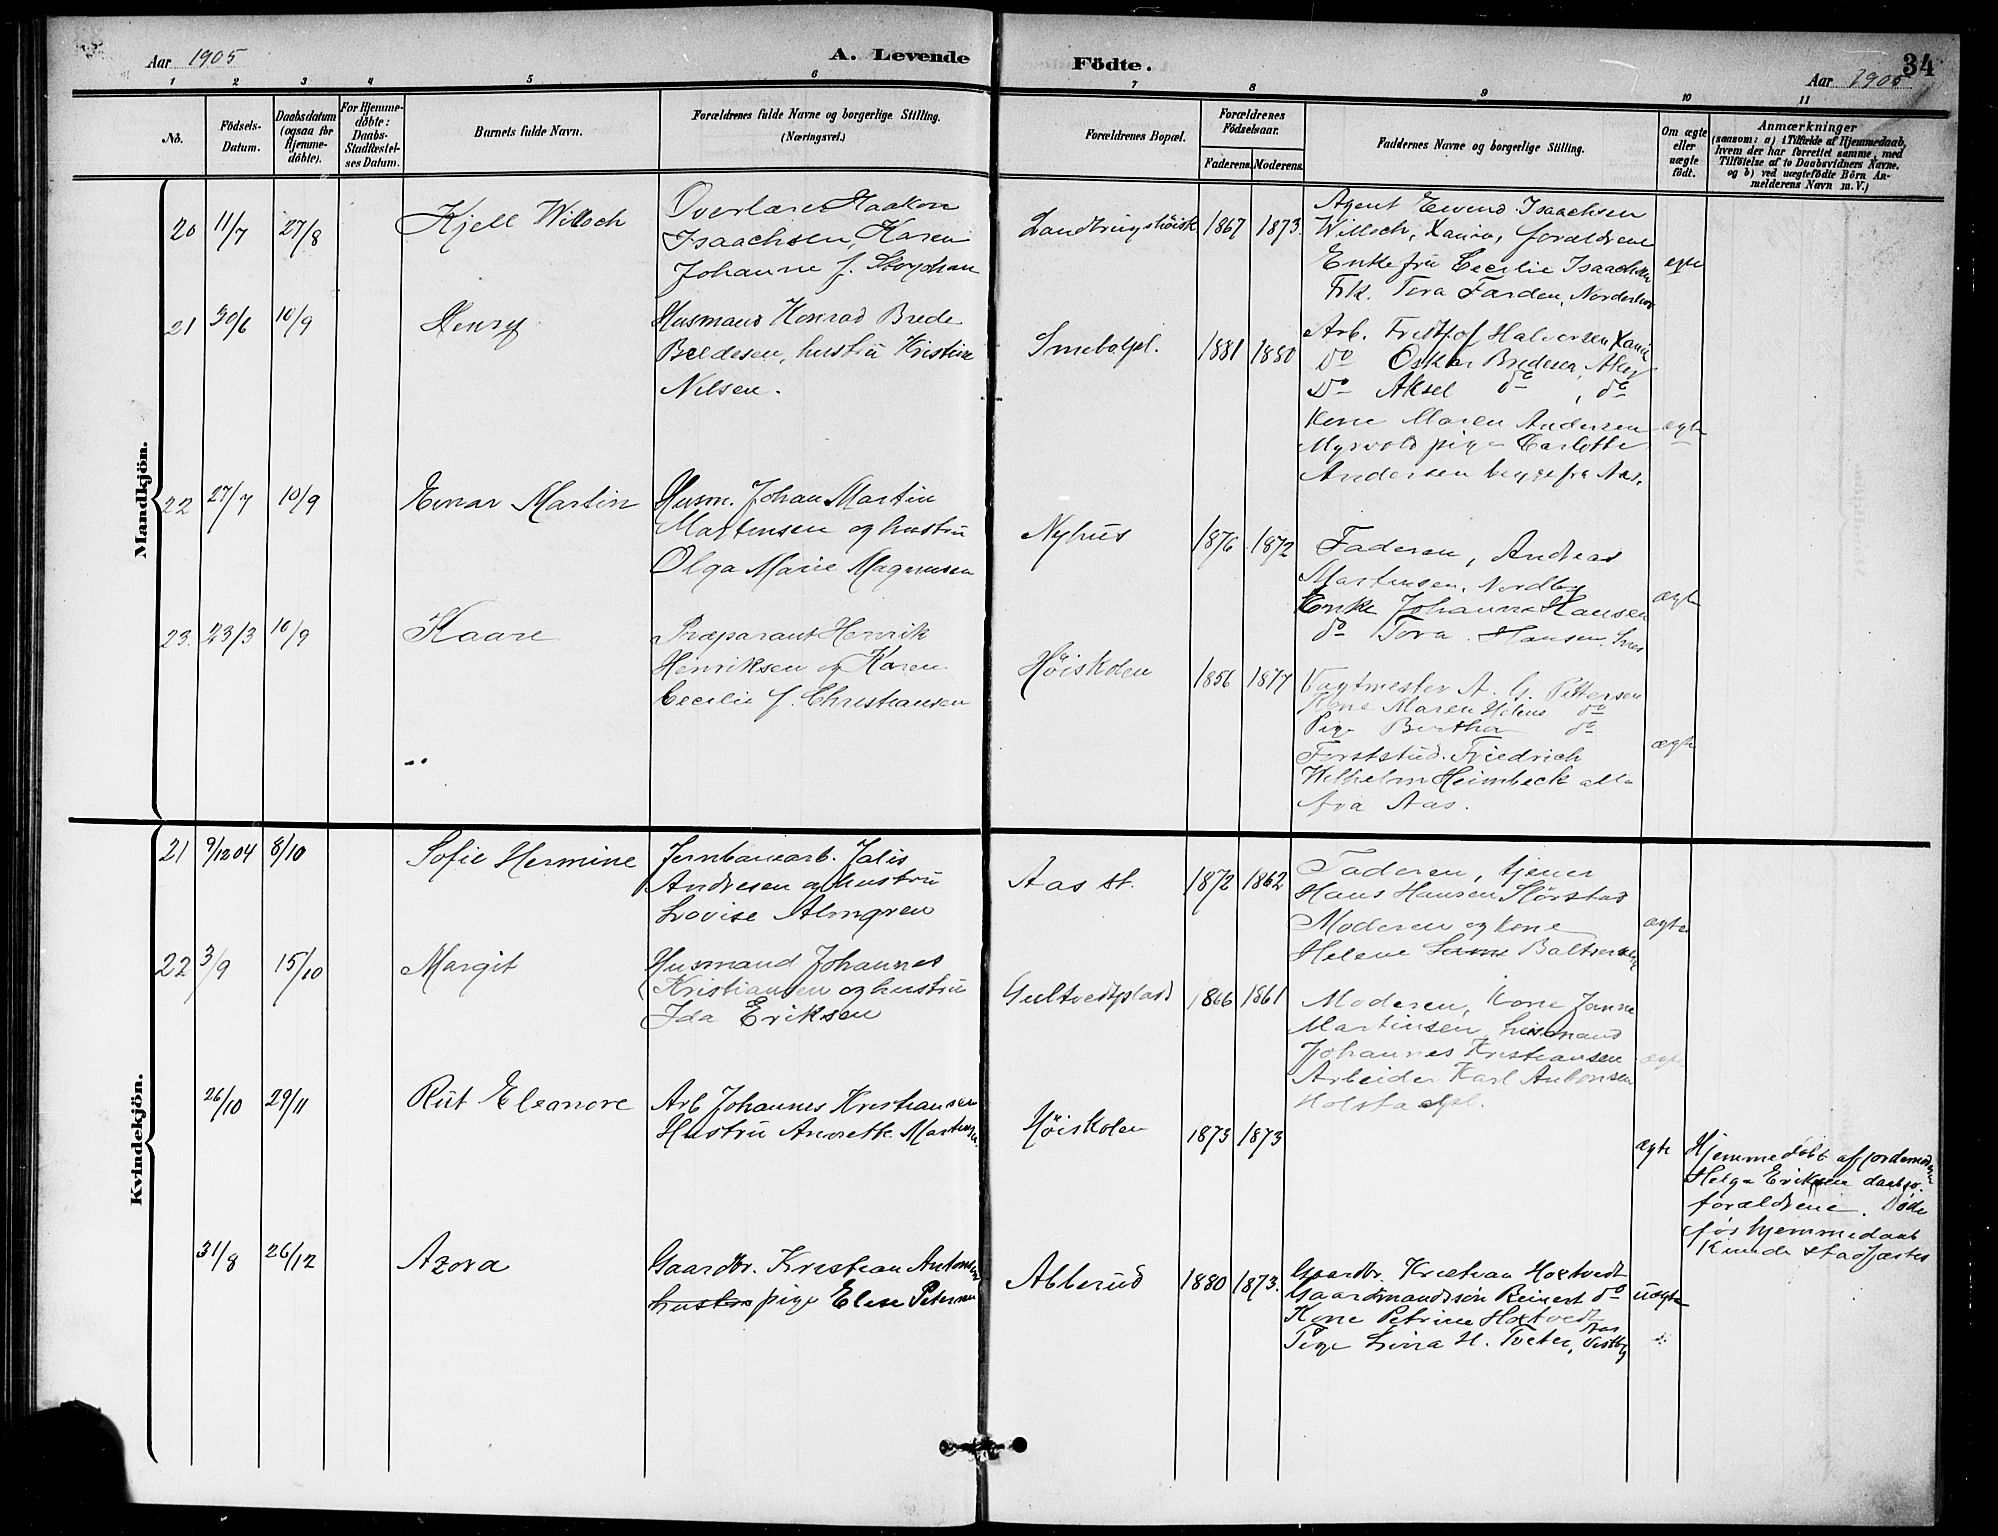 Aar 1905
A. Levende
Födte.
34
Aar 1905
1 2 3 4 5 6 7 8 9 10 11
No.
Födsels-
Datum.
Daabsdatum
(ogsaa for
Hjemme-
döbte).
For Hjemme-
döbte:
Daabs-
Stadfæstel-
ses Datum.
Barnets fulde Navn.
Forældrenes fulde Navne og borgerlige Stilling.
(Næringsvei.)
Forældrenes Bopæl.
Forældrenes
Födselsaar.
Faderens. Moderens.
Faddernes Navne og borgerlige Stilling.
Om ægte
eller
uægte
födt.
Anmærkninger
(saasom: a) i Tilfælde af Hjemmedaab,
hvem der har forrettet samme, med
Tilföielse af to Daabsvidners Navne.
og b) ved uægtefödte Börn An-
melderens Navn m. V.)
Mandkjön.
20 11/7 27/8 Kjell Willoch
Overlærer Haakon
Isaachsen, Karen
Johanne f.
1867 1873.
Agent Eivind Isaachsen
Willoch, Xania, forældrene
Enkefru Cecilie Isaachsen
Frk. Tora Farden,
ægte
21 30/6 10/9 Henry
Husmand Konrad Brede
Bredesen, hustru Kristine
Nilsen.
Smebølpl. 1881 1880
Arb. Fritjof Halvorsen Xania
do Oskar Bredesen, Aker
Do Aksel do, do
Kone Maren Andersen
Myrvold pige Carlotte
Andersen begge fra Aas.
ægte
22 27/7 10/9 Einar Martin
Husm. Johan Martin
Martinsen og hustru
Olga Marie Magnusen
Nyhus 1876 1872
Faderen, Andreas
Martinsen, Nordby
Enke Johanne Hansen
do Tora Hansen.
ægte
23. 23/3 10/9 Kaare
Præparant Henrik
Henriksen og Karen
Cecilie f. Christiansen
Höiskolen 1856 1877
Vagtmester A. G. Pettersen
Kone Maren Helene do
Pige Berthe do
Forststud. Friedrich
Wilhelm Heimbeck alle
fra Aas.
ægte
Kvindekjön.
21 9/12 04 8/10 Sofie Hermine
Jernbanearb. Julis
Andresen og hustru
Lovise Almgren
Aas st. 1872 1862
Faderen, tjener
Hans Hansen Slörstad
Moderen og kone
Helene
ægte
22 3/9 15/10 Margit
Husmand Johannes
Kristiansen og hustru
Ida Eriksen
1866 1861
Moderen, Kone Janne
Martinsen, husmand
Johannes Kristiansen
Arbeider Karl Antonsen
Holstadpl.
ægte
26/10 29/11 Rut Eleonore
Arb Johannes Kristiansen
Hustru Annette Martinsen
Höiskolen 1873 1873
ægte
Hjemmedöbt af jordemoder
Helga Eriksen
forældrene. Döde
för hjemmedaab
Kunde stadfæstes
31/8 26/12 Azora
Gaardbr. Kristian Antonsen
hustru pige Elise Petersen
Abberud 1880 1873.
Gaardbr. Kristian Hoxtvedt
Gaardmandssön Reinert do
Kone Petrine Hoxtvedt
Aas
Pige Lina H. Tveter, Vestby
uægte